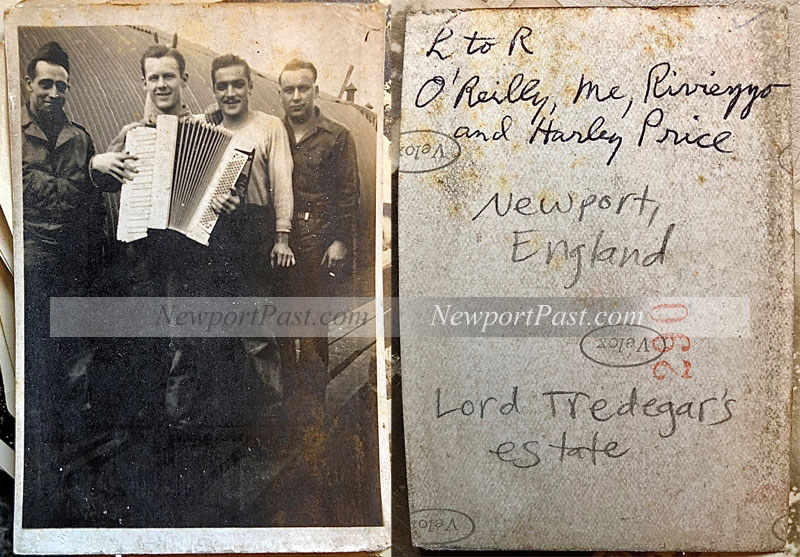 L to R
O'Reilly, Me, Riviezzo
and Harley Price
Velox
Newport,
England
NewportPast.com
NewportPast.com
Velox
290
Lord Tredegar's
estate
Velox